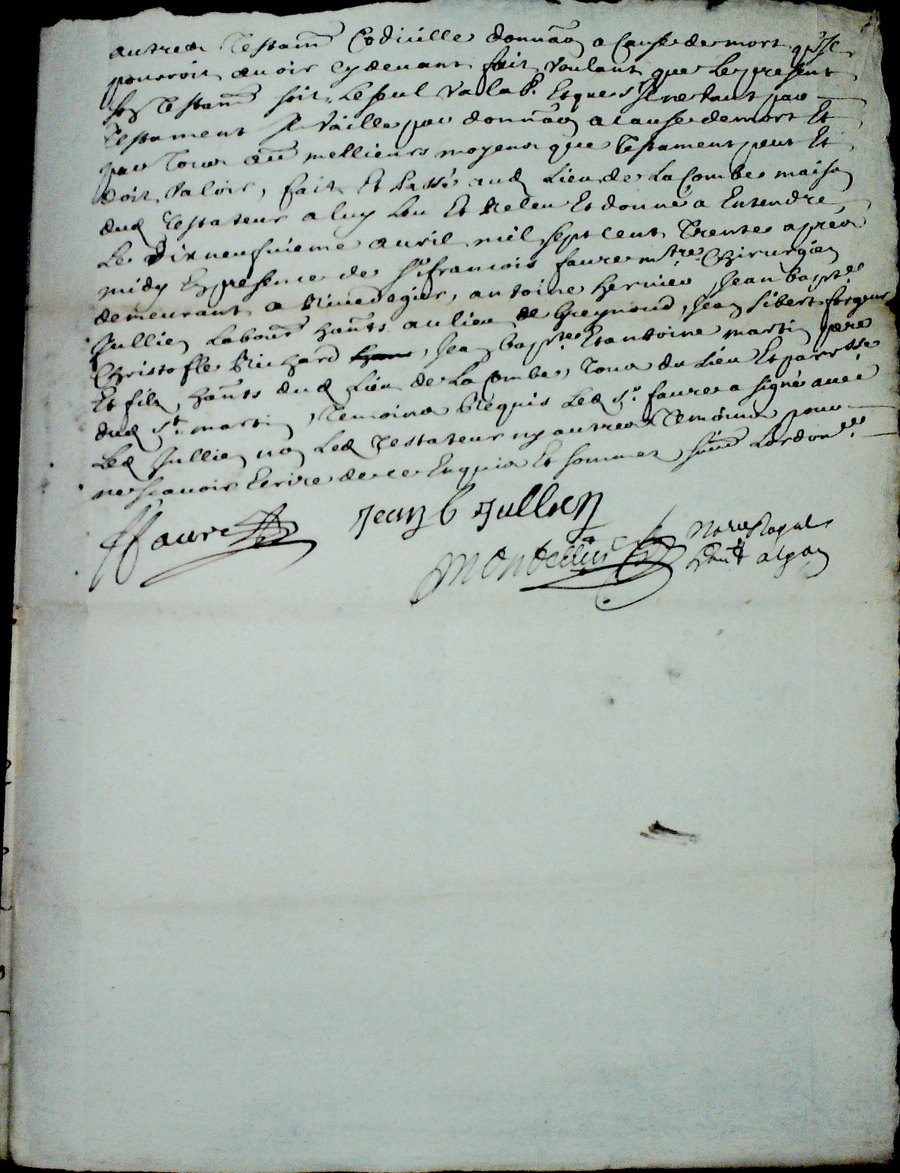 autres Testam̃ Codicille donnãon a cause de mort qu'Il
pourroit avoir cydevant fait voulant que Le present
son Testam̃ soit Le seul valab. Et que s'Il ne vaut par
Testament Il vaille par donnãon a cause de mort Et
par Tous aũ mellieurs moyens que Testament peut Et
doit valoir, fait Et Passé aud Lieu de La Combe maison
dud Testateur a luy Leu Et Releu Et donné a Entendre
Le Dixneufvieme avril mil sept Cent Trente apres
midy En presence de Sr francois faure mtre Chirurgien
demeurant a antoine hernieu, Jean bapte
Jullien Labours hants au lieu de Greymond, Jean sibert forgeur
Christofle Richard, Jean bapte Et antoine martin pere
Et filz, hants dud Lieu de La Combe, Tous du Lieu Et parroisse
dud St martin Temoins Requis Led Sr faure a signé avec
Led Jullien non Led Testateur ny autres Temoins pour
ne scavoir Ecrire de ce Enquis Et sommes suivt Lordonce
ffaure
Jean b Jullien
Montellius Notre Royal